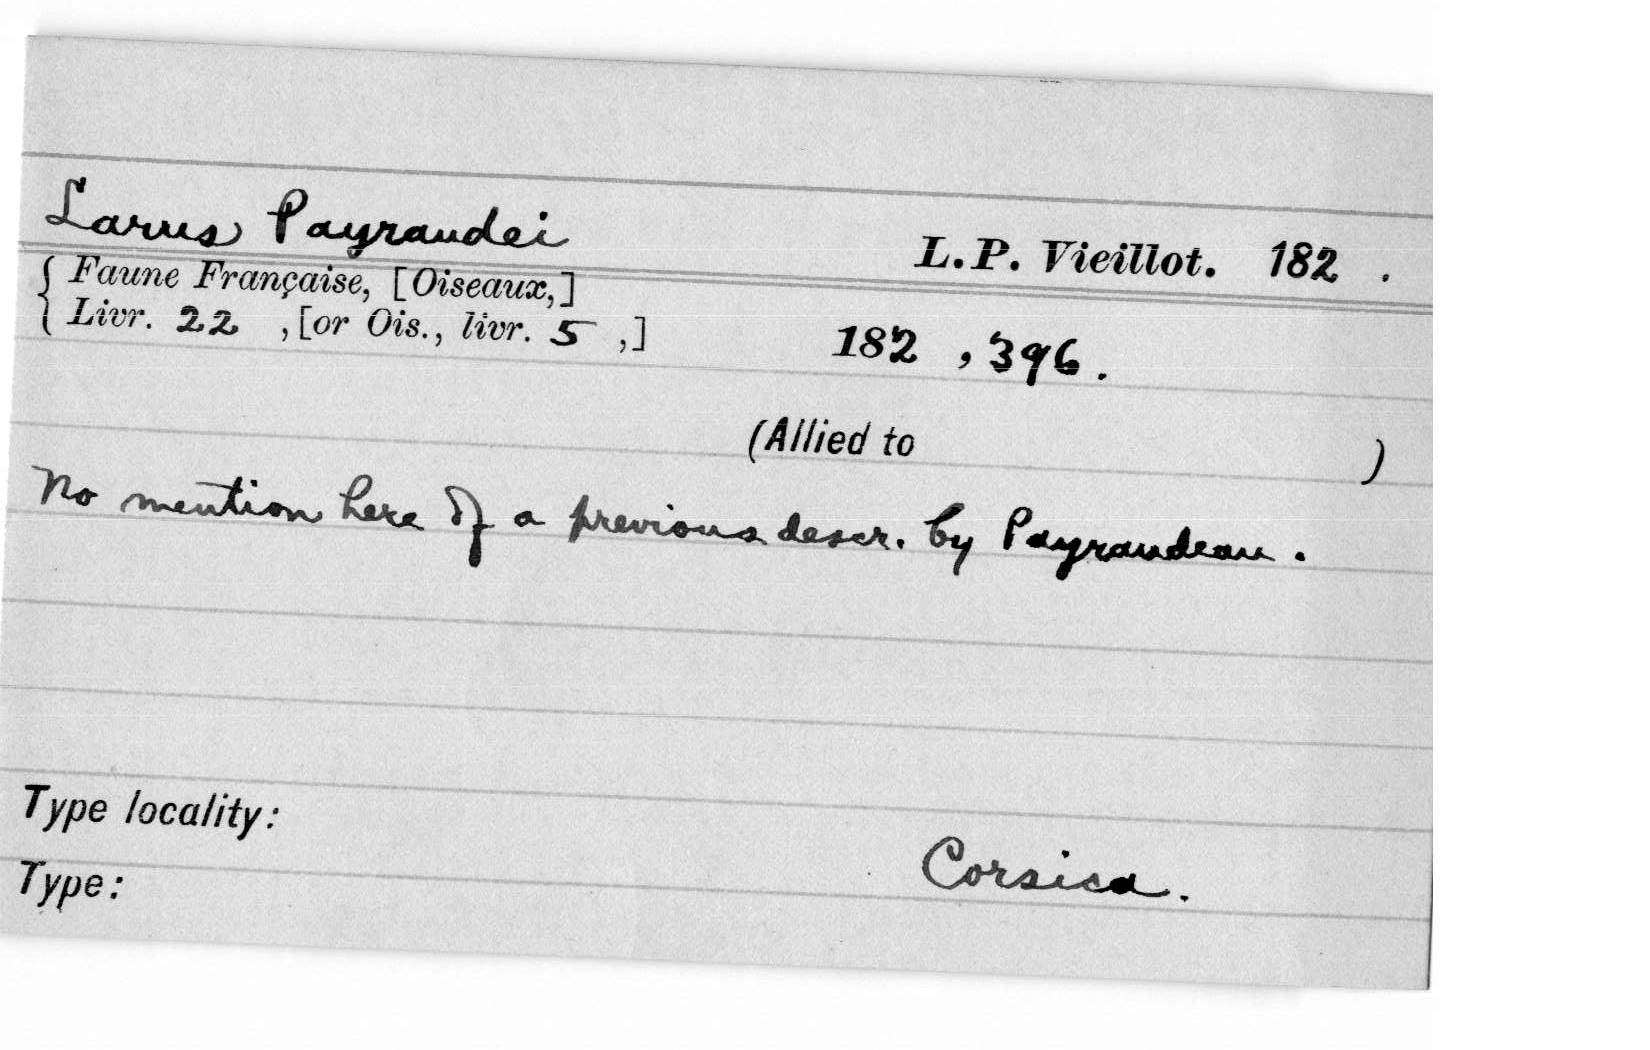 Larus Payraudei
L.P. Vieillot. 182 .
{ Faune Française, [Oiseaux,]
Livr. 22 , [or Ois., livr. 5 ,]
182 , 396.
(Allied to )
No mention here of a previous descr. by Payraudeau.
Type locality:
Corsica.
Type: